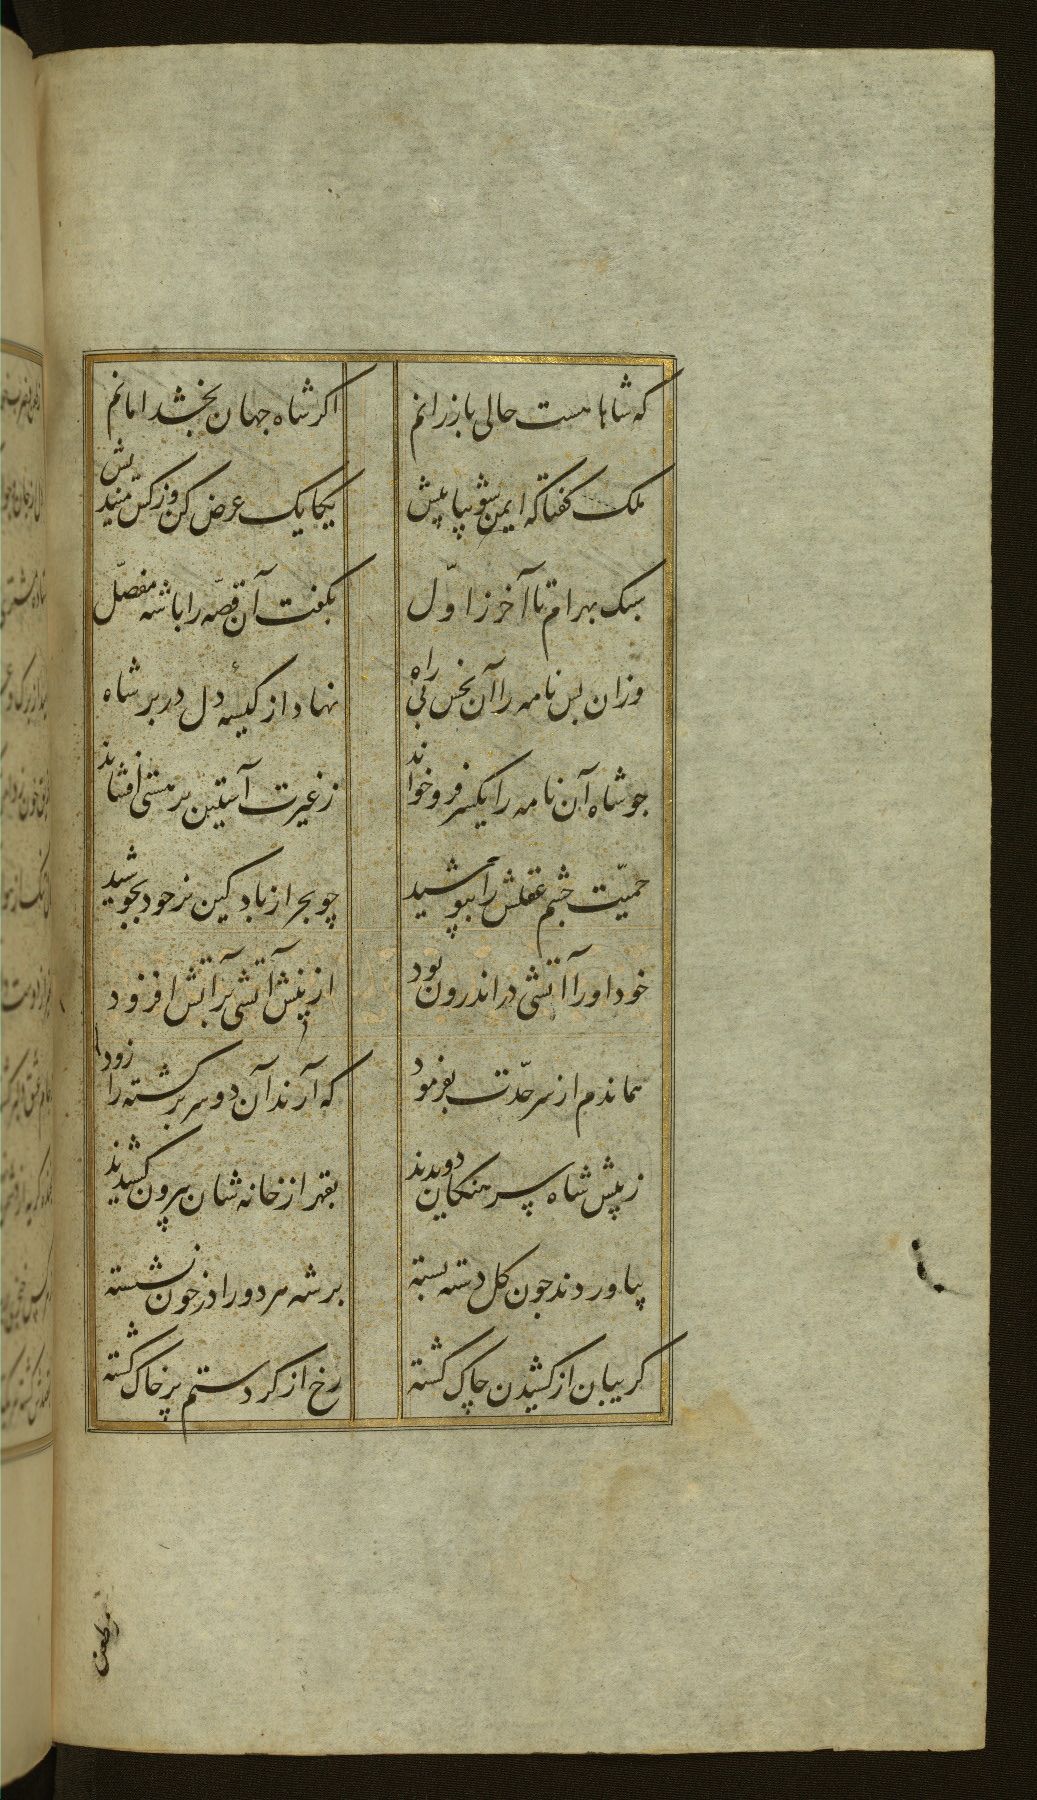 که شاها هست حالی باز رانم
اکر شاه جهان بخشد امانم
ملک کفتا که ایمن شو بیا پیش
یکایک عرض کن وز کس میندیش
سبک بهرام تا آخر ز اوّل
بکفت آن قصّه را با شه مفصّل
وزان پس نامه را آن نحس بی راه
نهاد از کیسۀ دل در بر شاه
جو شاه آن نامه را یکسر فرو خواند
ز غیرت آستین بر هستی افشاند
حمیّت چشم عقلش را بپوشید
چو بحر از باد کین بر خود بجوشید
خود او را آتشی در اندرون بود
ازینش آتشی بر آتش افزود
هماندم از سر حدّت بفرمود
که آرند آن دو سر برکشته را زود
ز پیش شاه سرهنکان دویدند
بقهر از خانه شان بیرون کشیدند
بیاوردند جون کل دسته بسته
بر شه هر دو را در خون نشسته
کریبان از کشیدن چاک کشته
رخ از کرد ستم پر خاک کشته